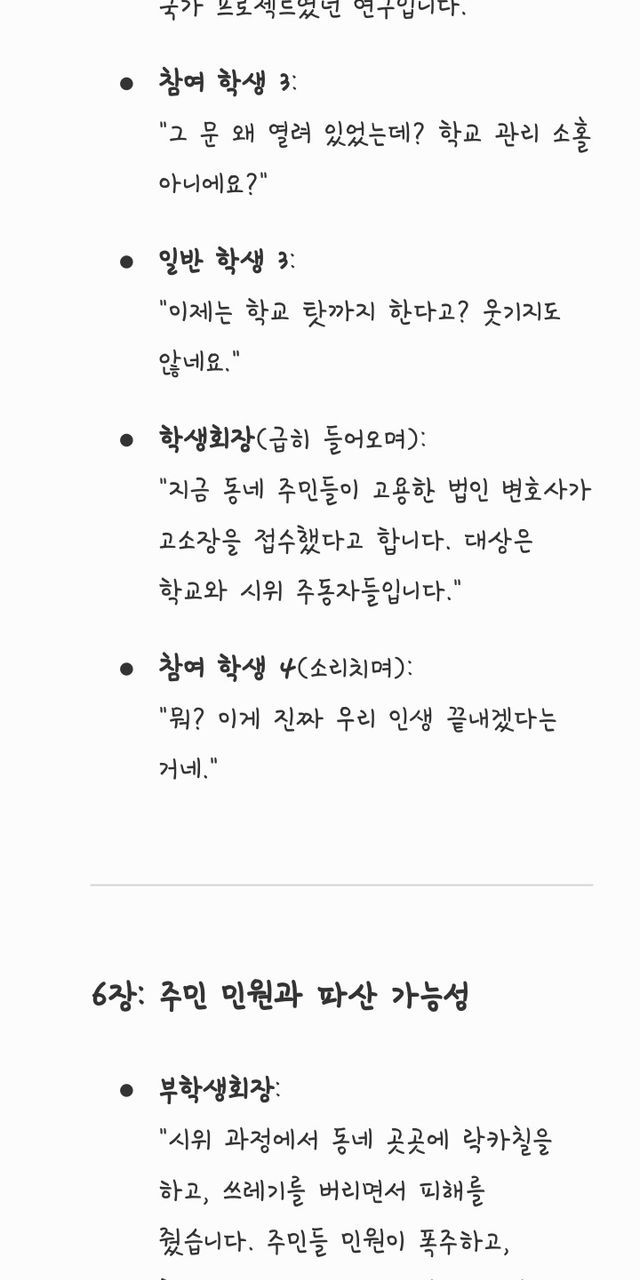 국가 프로젝트였던 연구입니다.
● 참여 학생 3:
"그 문 왜 열려 있었는데? 학교 관리 소홀
아니에요?"
● 일반 학생 3:
"이제는 학교 탓까지 한다고? 웃기지도
않네요."
● 학생회장(급히 들어오며):
"지금 동네 주민들이 고용한 법인 변호사가
고소장을 접수했다고 합니다. 대상은
학교와 시위 주동자들입니다."
● 참여 학생 4(소리치며):
"뭐? 이게 진짜 우리 인생 끝내겠다는
거네."
6장: 주민 민원과 파산 가능성
● 부학생회장:
"시위 과정에서 동네 곳곳에 락카칠을
하고, 쓰레기를 버리면서 피해를
줬습니다. 주민들 민원이 폭주하고,